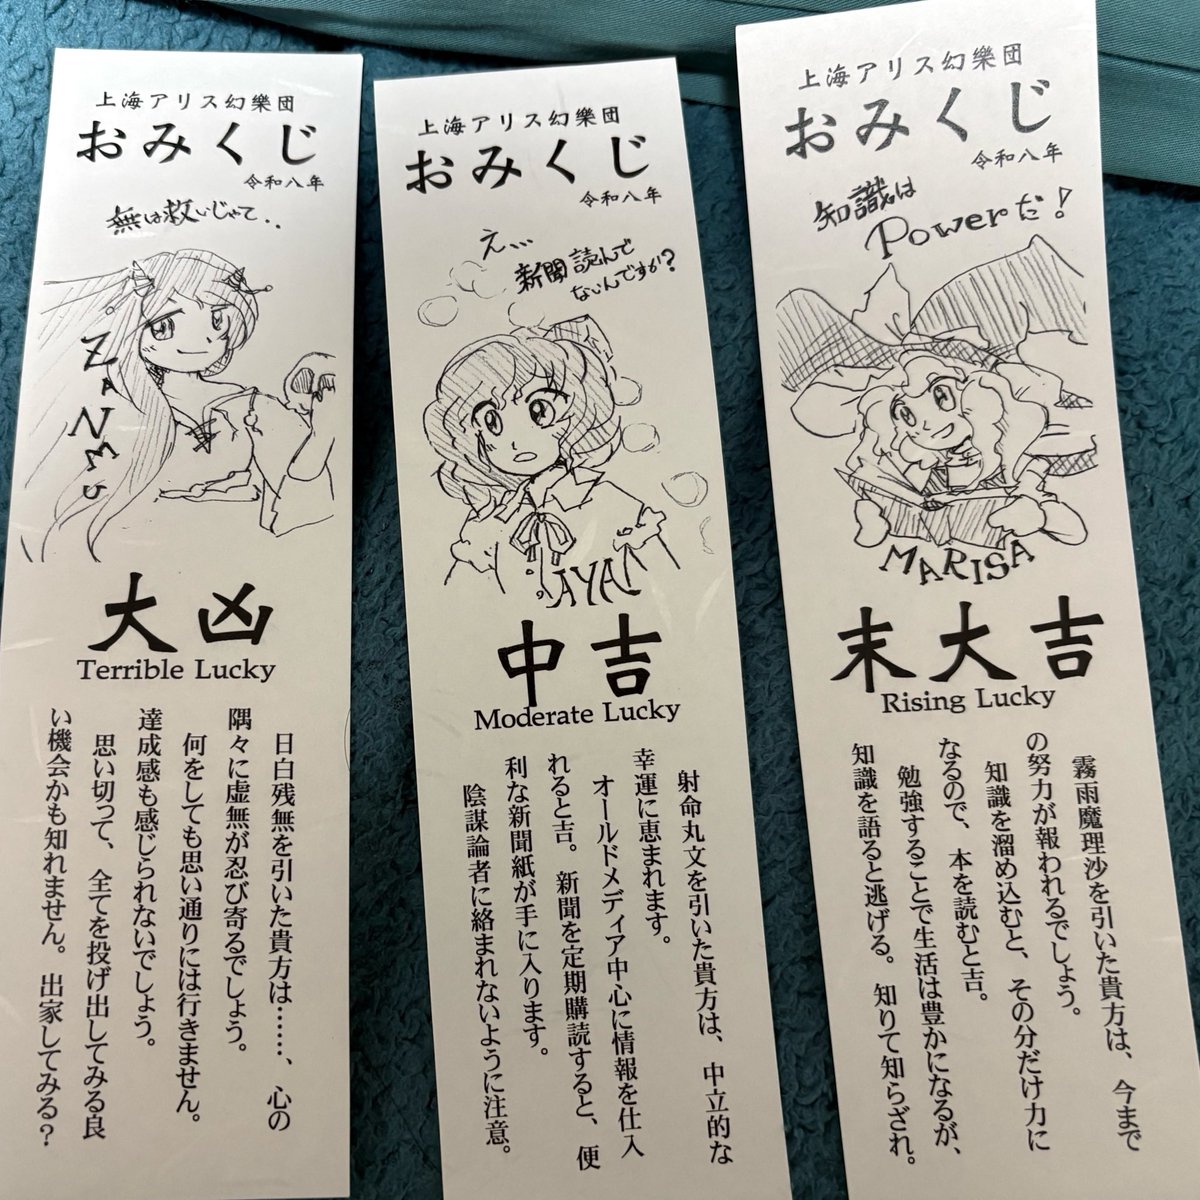 上海アリス幻樂団
おみくじ
令和八年
無は救いじゃて..
ZANEs
大凶
Terrible Lucky
日白残無を引いた貴方は……、心の
隅々に虚無が忍び寄るでしょう。
何をしても思い通りには行きません。
達成感も感じられないでしょう。
思い切って、全てを投げ出してみる良
い機会かも知れません。出家してみる?
上海アリス幻樂団
おみくじ
令和八年
え…
新聞読んで
ないんですか?
AYA
中吉
Moderate Lucky
射命丸文を引いた貴方は、中立的な
幸運に恵まれます。
オールドメディア中心に情報を仕入
れると吉。新聞を定期購読すると、便
利な新聞紙が手に入ります。
陰謀論者に絡まれないように注意。
上海アリス幻樂団
おみくじ
令和八年
知識は
Powerだ!
MARISA
末大吉
Rising Lucky
霧雨魔理沙を引いた貴方は、今まで
の努力が報われるでしょう。
知識を溜め込むと、その分だけ力に
なるので、本を読むと吉。
勉強することで生活は豊かになるが、
知識を語ると逃げる。知りて知らざれ。